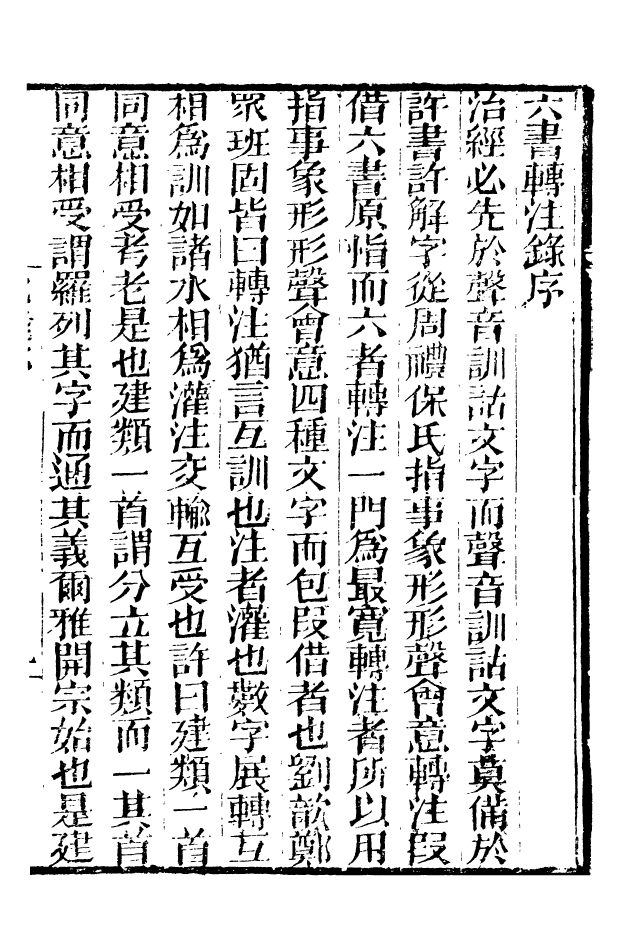 六書轉注錄序
治經必先於聲音訓詁文字而聲音訓詁文字莫備於
許書許解字從周禮保氏指事象形形聲會意轉注叚
借六書原恉而六者轉注一門爲最寬轉注者所以用
指事象形形聲會意四種文字而包叚借者也劉歆鄭
眾班固皆曰轉注猶言互訓也注者灌也數字展轉互
相爲訓如諸水相爲灌注交輸互受也許曰建類一首
同意相受考老是也建類一首謂分立其類而一其首
同意相受謂羅列其字而通其義爾雅開宗始也是建